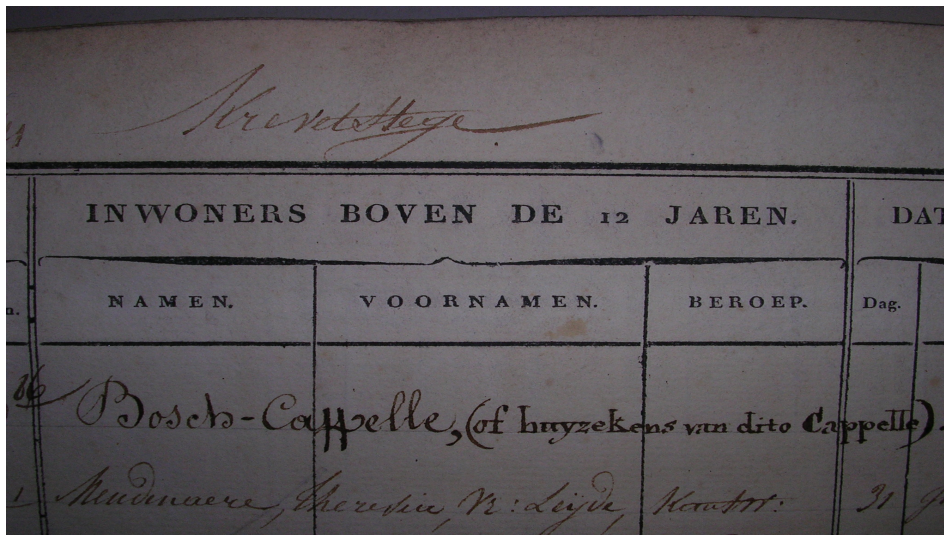 Krevelstege
INWONERS BOVEN DE 12 JAREN. DAT
NAMEN. VOORNAMEN. BEROEP. Dag.
86 Bosch-Cappelle, (of huyzekens van dito Cappelle).
Theresia, 31